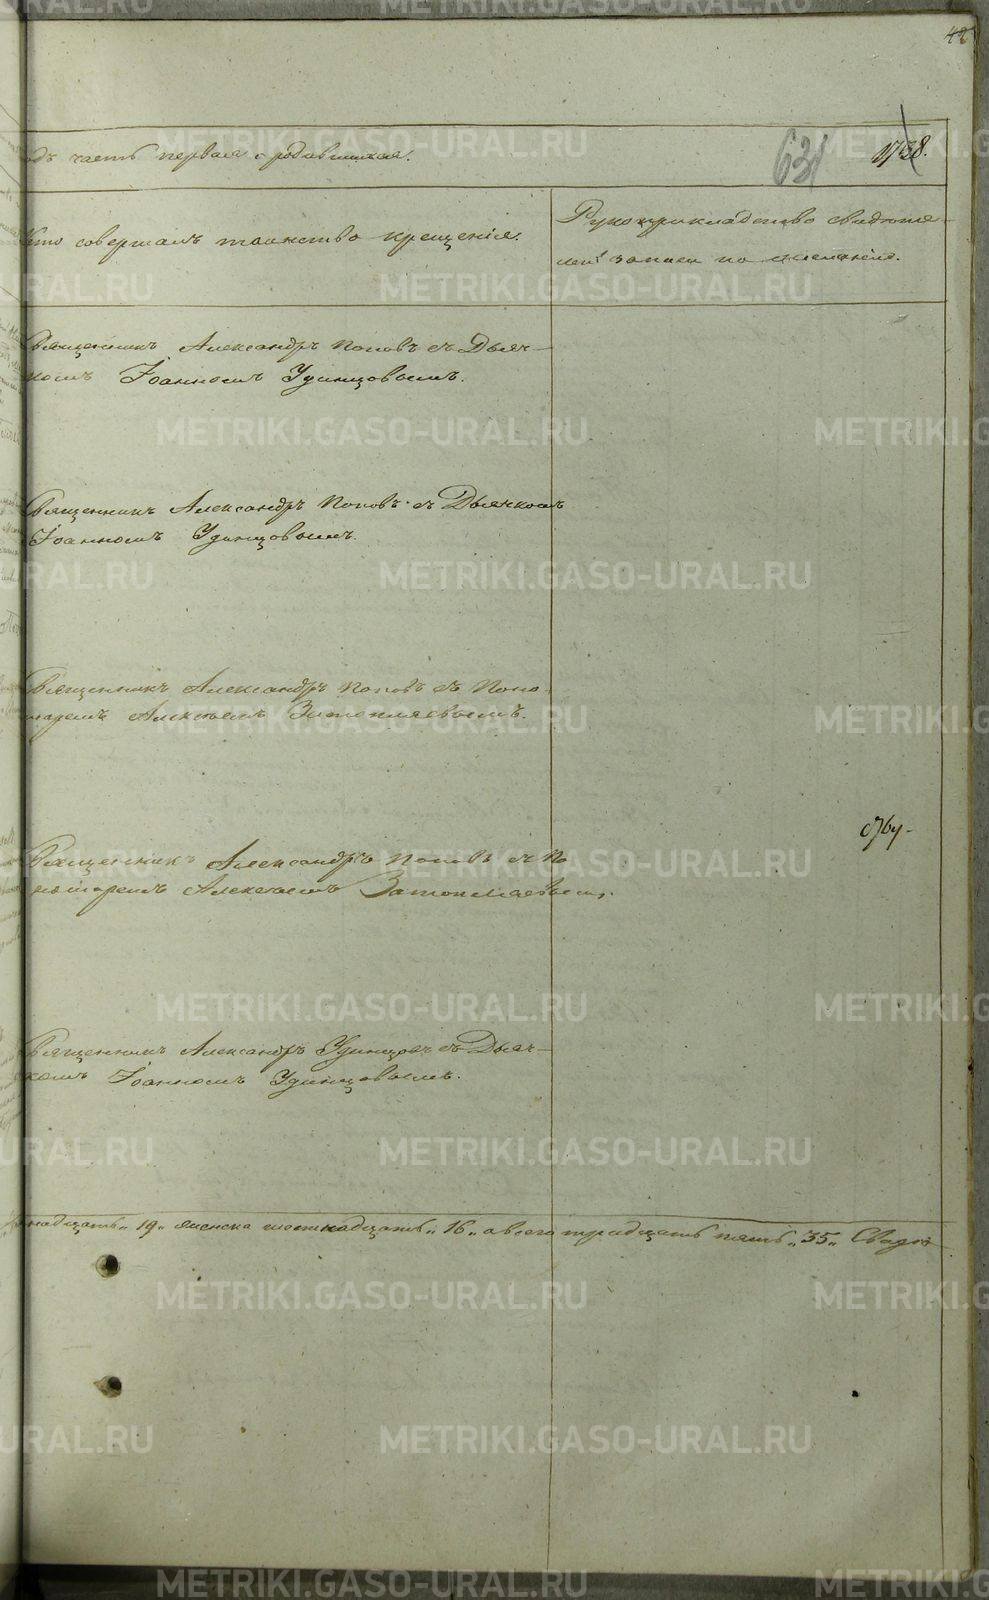 METRIKI.GASO-URAL.RU
42
одъ часть первая о родившихся.
631
1738.
Кто совершалъ таинство крещенія.
Рукоприкладство свидѣте-
лей записи по желанію.
Священникъ Александръ Поповъ съ Дьяч-
комъ Іоанномъ Удинцовымъ.
Священникъ Александръ Поповъ съ Дьячкомъ
Іоанномъ Удинцовымъ.
Священникъ Александръ Поповъ съ Поно-
маремъ Алексѣемъ Затопляевымъ.
Священникъ Александръ Поповъ съ По
номаремъ Алексѣемъ Затопляевымъ.
Священникъ Александръ Удинцовъ съ Дьяч-
комъ Іоанномъ Удинцовымъ.
надцать „19„ женска шестнадцать „16„ а всего тридцать пять „35„